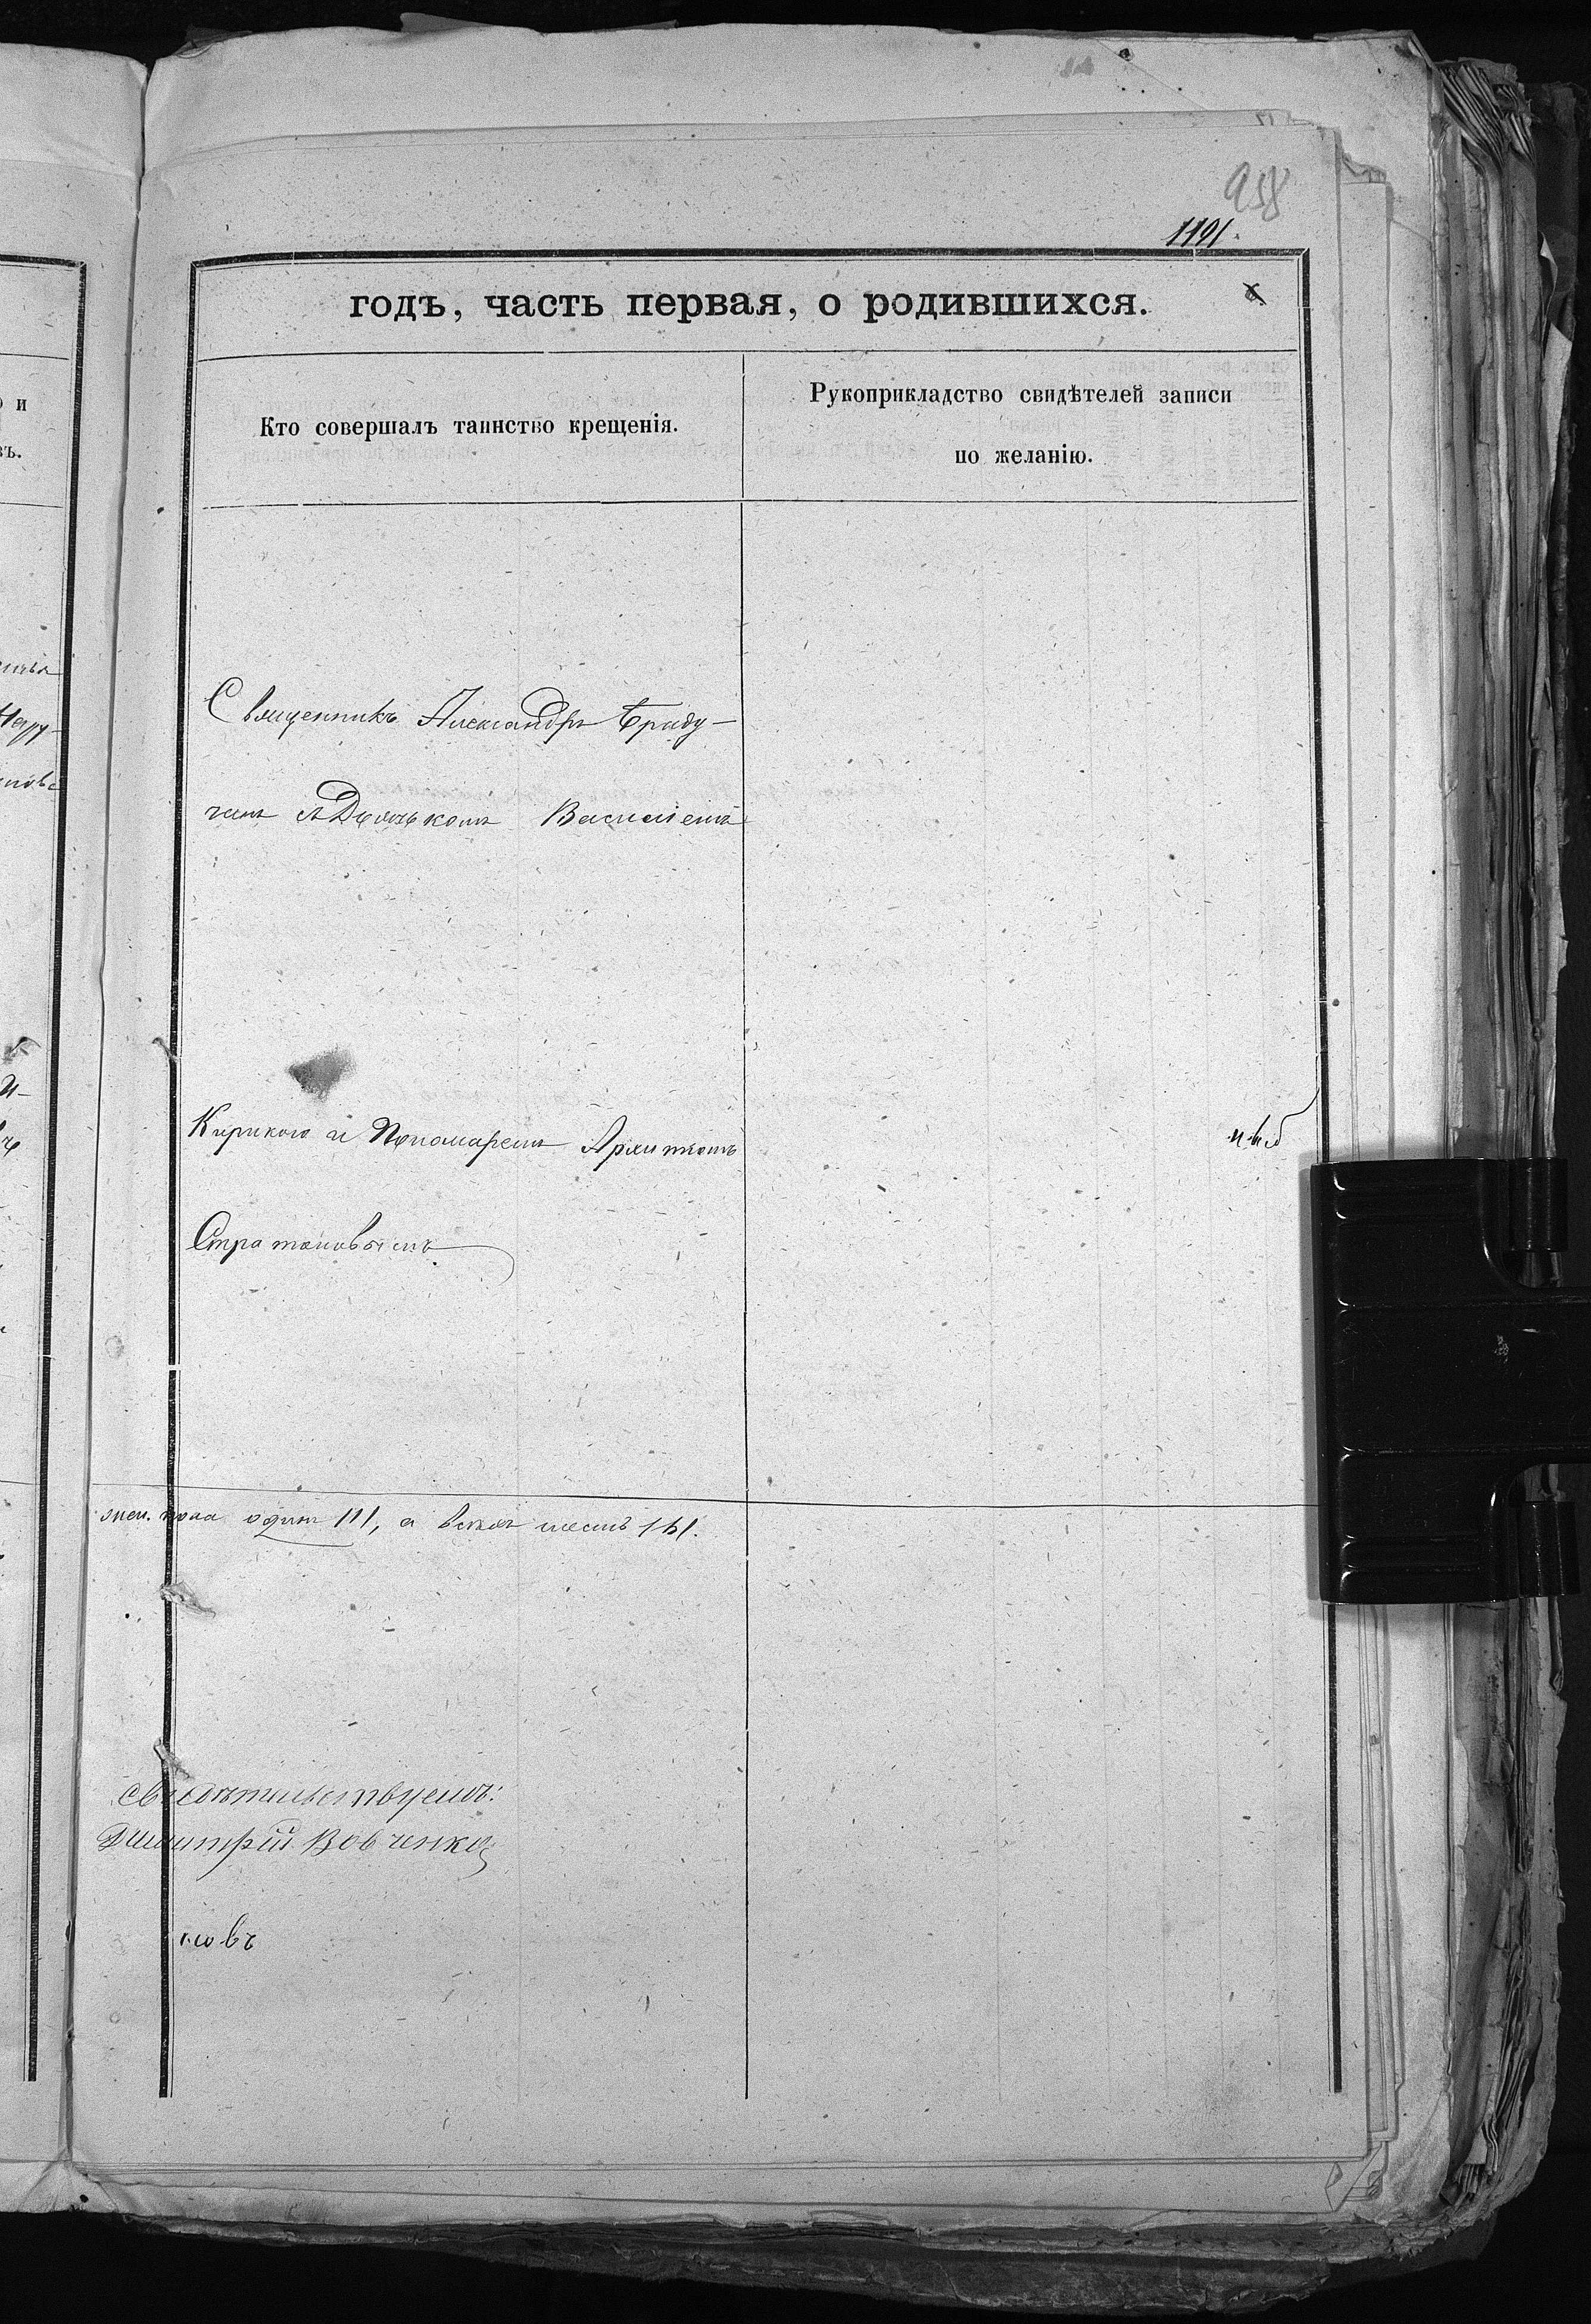 958
1191.
годъ, часть первая, о родившихся.
Кто совершалъ таинство крещенія.
Рукоприкладство свидѣтелей записи
по желанію.
Священникъ Александръ
съ Дьячкомъ Василіемъ
и Пономаремъ
Стратоновымъ
жен. пола одинъ /1/, а всѣхъ шесть /6/.
свидѣтельствуемъ:
Димитрій Вовченко
ковъ